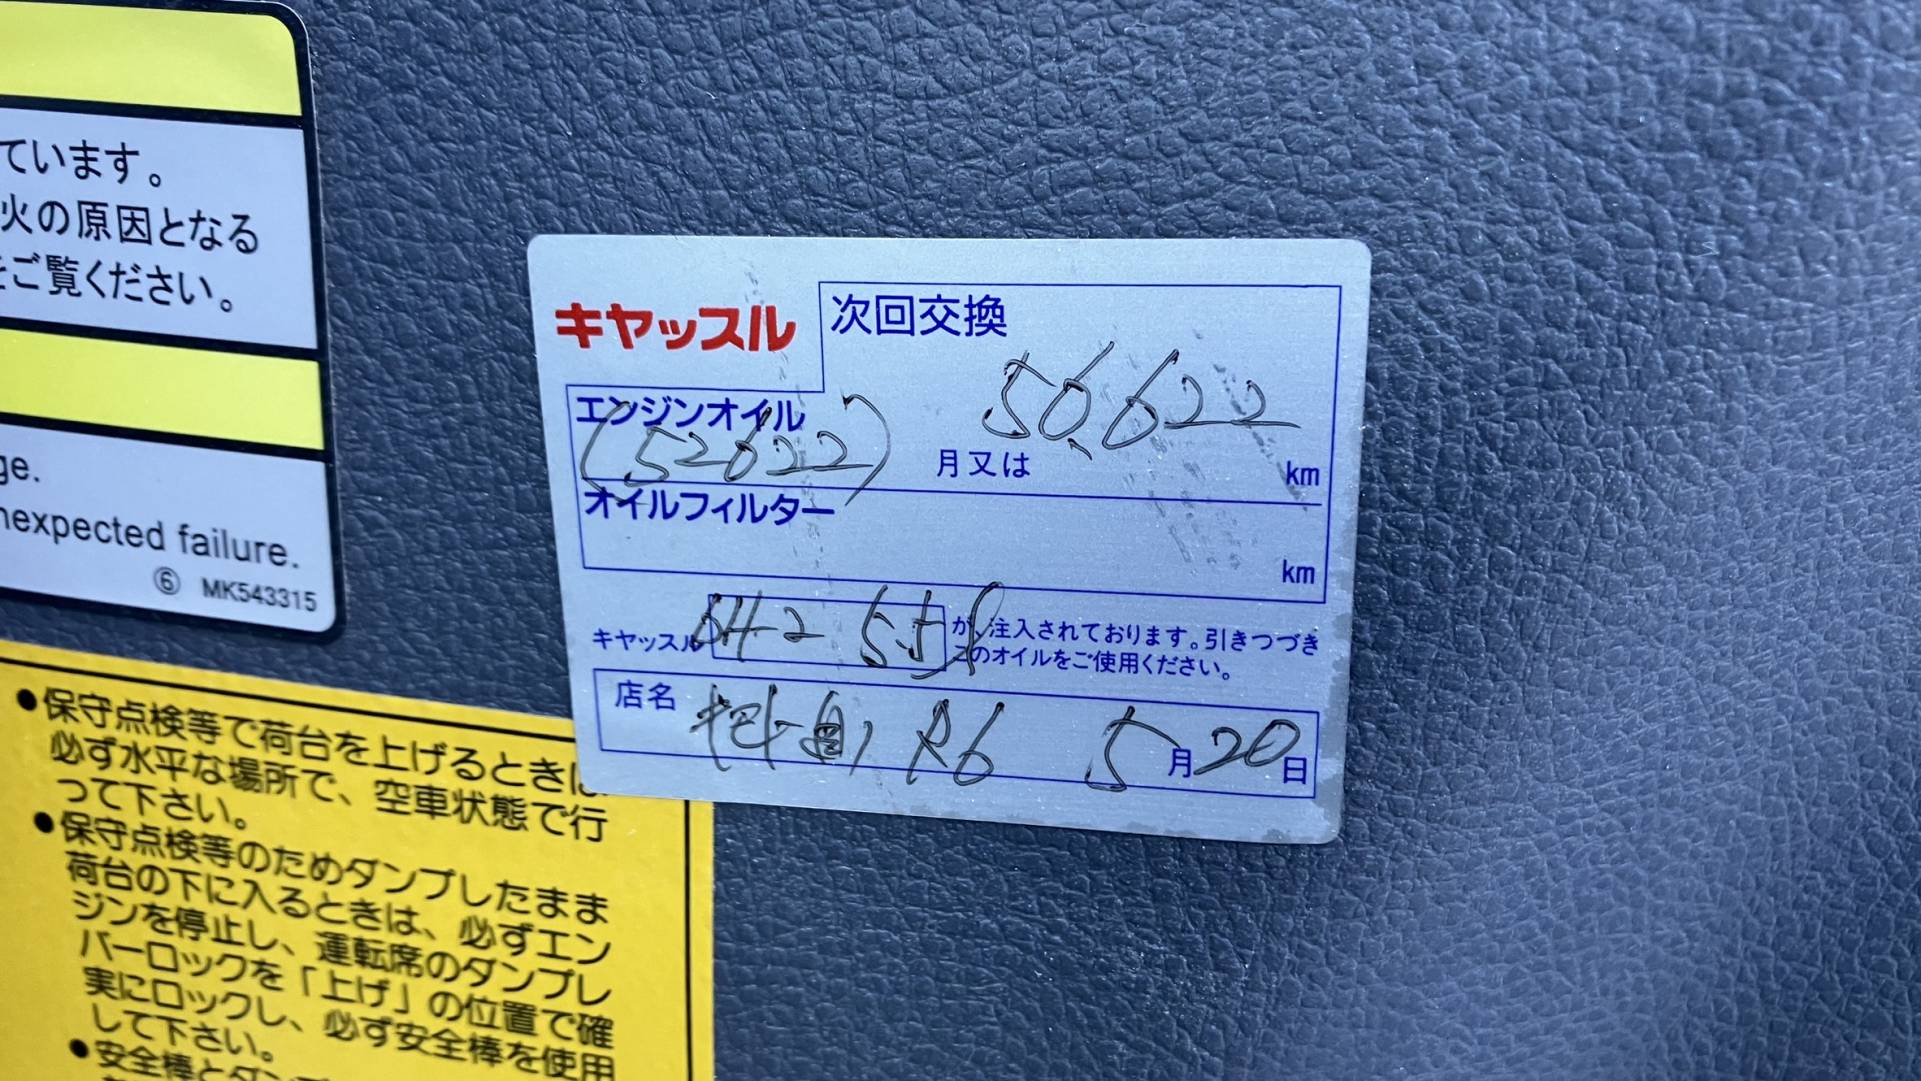 ています。
火の原因となる
をご覧ください。
ge.
nexpected failure.
⑥ MK543315
キヤッスル
次回交換
エンジンオイル
(52622)
56622
月又は
km
オイルフィルター
km
キヤッスル DH-2 5.5ℓ が、注入されております。引きつづき
このオイルをご使用ください。
店名 R6 5月20日
●保守点検等で荷台を上げるときは、
必ず水平な場所で、空車状態で行
って下さい。
●保守点検等のためダンプしたまま
荷台の下に入るときは、必ずエン
ジンを停止し、運転席のダンプレ
バーロックを「上げ」の位置で確
実にロックし、必ず安全棒を使用
して下さい。
●安全棒とダンプ